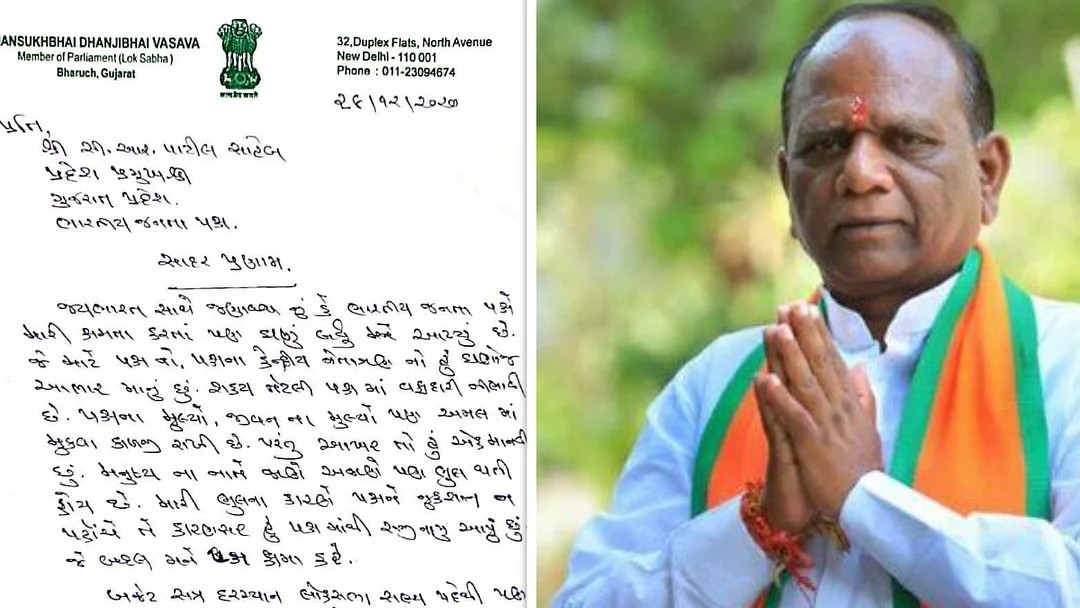 ANSUKHBHAI DHANJIBHAI VASAVA
Member of Parliament (Lok Sabha)
Bharuch, Gujarat
सत्यमेव जयते
32,Duplex Flats, North Avenue
New Delhi - 110 001
Phone : 011-23094674
૨૮/૧૨/૨૦૨૦
પ્રતિ,
શ્રી સી. આર. પાટીલ સાહેબ
પ્રદેશ પ્રમુખશ્રી
ગુજરાત પ્રદેશ.
ભારતીય જનતા પક્ષ.
સાદર પ્રણામ.
જયભારત સાથે જણાવવાનું કે ભારતીય જનતા પક્ષે
મારી ક્ષમતા કરતાં પણ ઘણું બધું મને આપ્યું છે.
જે માટે પક્ષ નો, પક્ષના કેન્દ્રીય નેતાગણ નો હું ઘણોજ
આભાર માનું છું. શક્ય તેટલી પક્ષ માં વફાદારી નીભાવી
છે. પક્ષના મુલ્યો, જીવન ના મુલ્યો પણ અમલ માં
મુકવા કાળજી રાખી છે. પરંતુ આખરે તો હું એક માનવી
છું. મનુષ્ય ના નાતે જાણે અજાણે પણ ભુલ થતી
હોય છે. મારી ભુલના કારણે પક્ષને નુકશાન ન
પહોંચે તે કારણસર હું પક્ષ માંથી રાજીનામુ આપું છું
જે બદલ મને પક્ષ ક્ષમા કરે.
બજેટ સત્ર દરમ્યાન લોકસભા સભ્ય પદેથી પણ